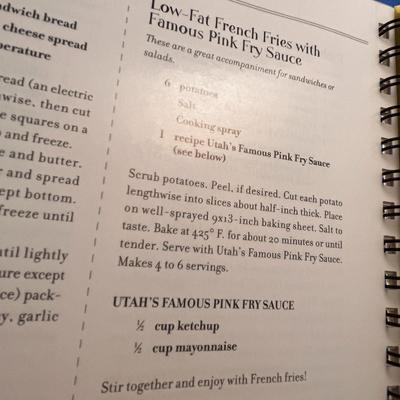 ndwich bread
cheese spread
perature
read (an electric
hwise, then cut
e squares on a
and freeze.
e and butter.
r and spread
ept bottom.
freeze until
ntil lightly
ure except
ce) pack-
y, garlic
Low-Fat French Fries with
Famous Pink Fry Sauce
These are a great accompaniment for sandwiches or
salads.
6 potatoes
Salt
Cooking spray
1 recipe Utah's Famous Pink Fry Sauce
(see below)
Scrub potatoes. Peel, if desired. Cut each potato
lengthwise into slices about half-inch thick. Place
on well-sprayed 9x13-inch baking sheet. Salt to
taste. Bake at 425° F. for about 20 minutes or until
tender. Serve with Utah's Famous Pink Fry Sauce.
Makes 4 to 6 servings.
UTAH'S FAMOUS PINK FRY SAUCE
½ cup ketchup
½ cup mayonnaise
Stir together and enjoy with French fries!